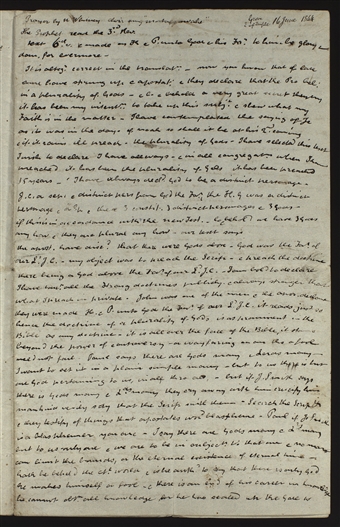 Prayer by N. Whitney
Grove 16 June 1844
The Prophet read the 3rd Rev.
text 6th v. & made us K & P. unto God & his Fa. to him be glory and
dom. for evermore
It is altogr. correct in the translatn. - now you know that of late
some have sprung up & apostat. & they declare that the Pro. bel.
in a plurality of Gods - & lo & behold a very great secret they cry
it has been my intentn. to take up this subj. & shew what my
Faith is in the matter - I have contemplated the saying of Je
as it was in the days of Noah so shall it be at his 2nd coming
& if it rains Ill preach - the plurality of Gods - I have selected this text
I wish to declare I have allways - & in all congregats. when I have
preached it has been the plurality of Gods it has been preached
15 years - I have always decld. God to be a distinct personage -
J. C. a sep. & distinct pers from God the Far. the H. G. was a distinct
personage & or Sp & these 3 constit. 3 distinct personages & 3 Gods -
if this is in accordance with the new Test. - lo & behold we have 3 Gods
any how & they are plural any how - our text says
the apost. have discd. that there were Gods above - God was the Far. of
our L. J. C. - my object was to preach the Scrip - & preach the doctrine
there being a God above the Far. of our L. J. C. - I am bold to declare
I have taut. all the strong doctrines publicly - always stronger than
what I preach in private - John was one of the men & the apos. declare
they were made K. & P. unto God the Far. of our L. J. C. it reads just so
hence the doctrine of a plurality of Gods is as prominent in the
Bible as any doctrine - it is all over the face of the Bible, it st.
beyond the power of controversy - a wayfaring man tho a fool
need not fail - Paul says there are Gods many & Lords many -
I want to set it in a plain simple manner - but to us there is but
one God pertaining to us, in all thro all - but if J. Smith says
there is Gods many & Lds. many they cry away with him crucify him
mankind verily say that the Scrip. is with them - Search the Script
& they testify of things that apostates wod. blaspheme - Paul if Jo Smith
is a blasphemer you are - I say there are Gods many & Lds. many
but to us only one & we are to be in subject. to that one & no man
can limit the bounds, or the eternal existence of eternal time -
hath he beheld the etl. world & is he authd. to say that there is only God
he makes himself a fool - & there is an End of his career in knowledge
he cannot obtn. all knowledge for he has sealed up the gate to